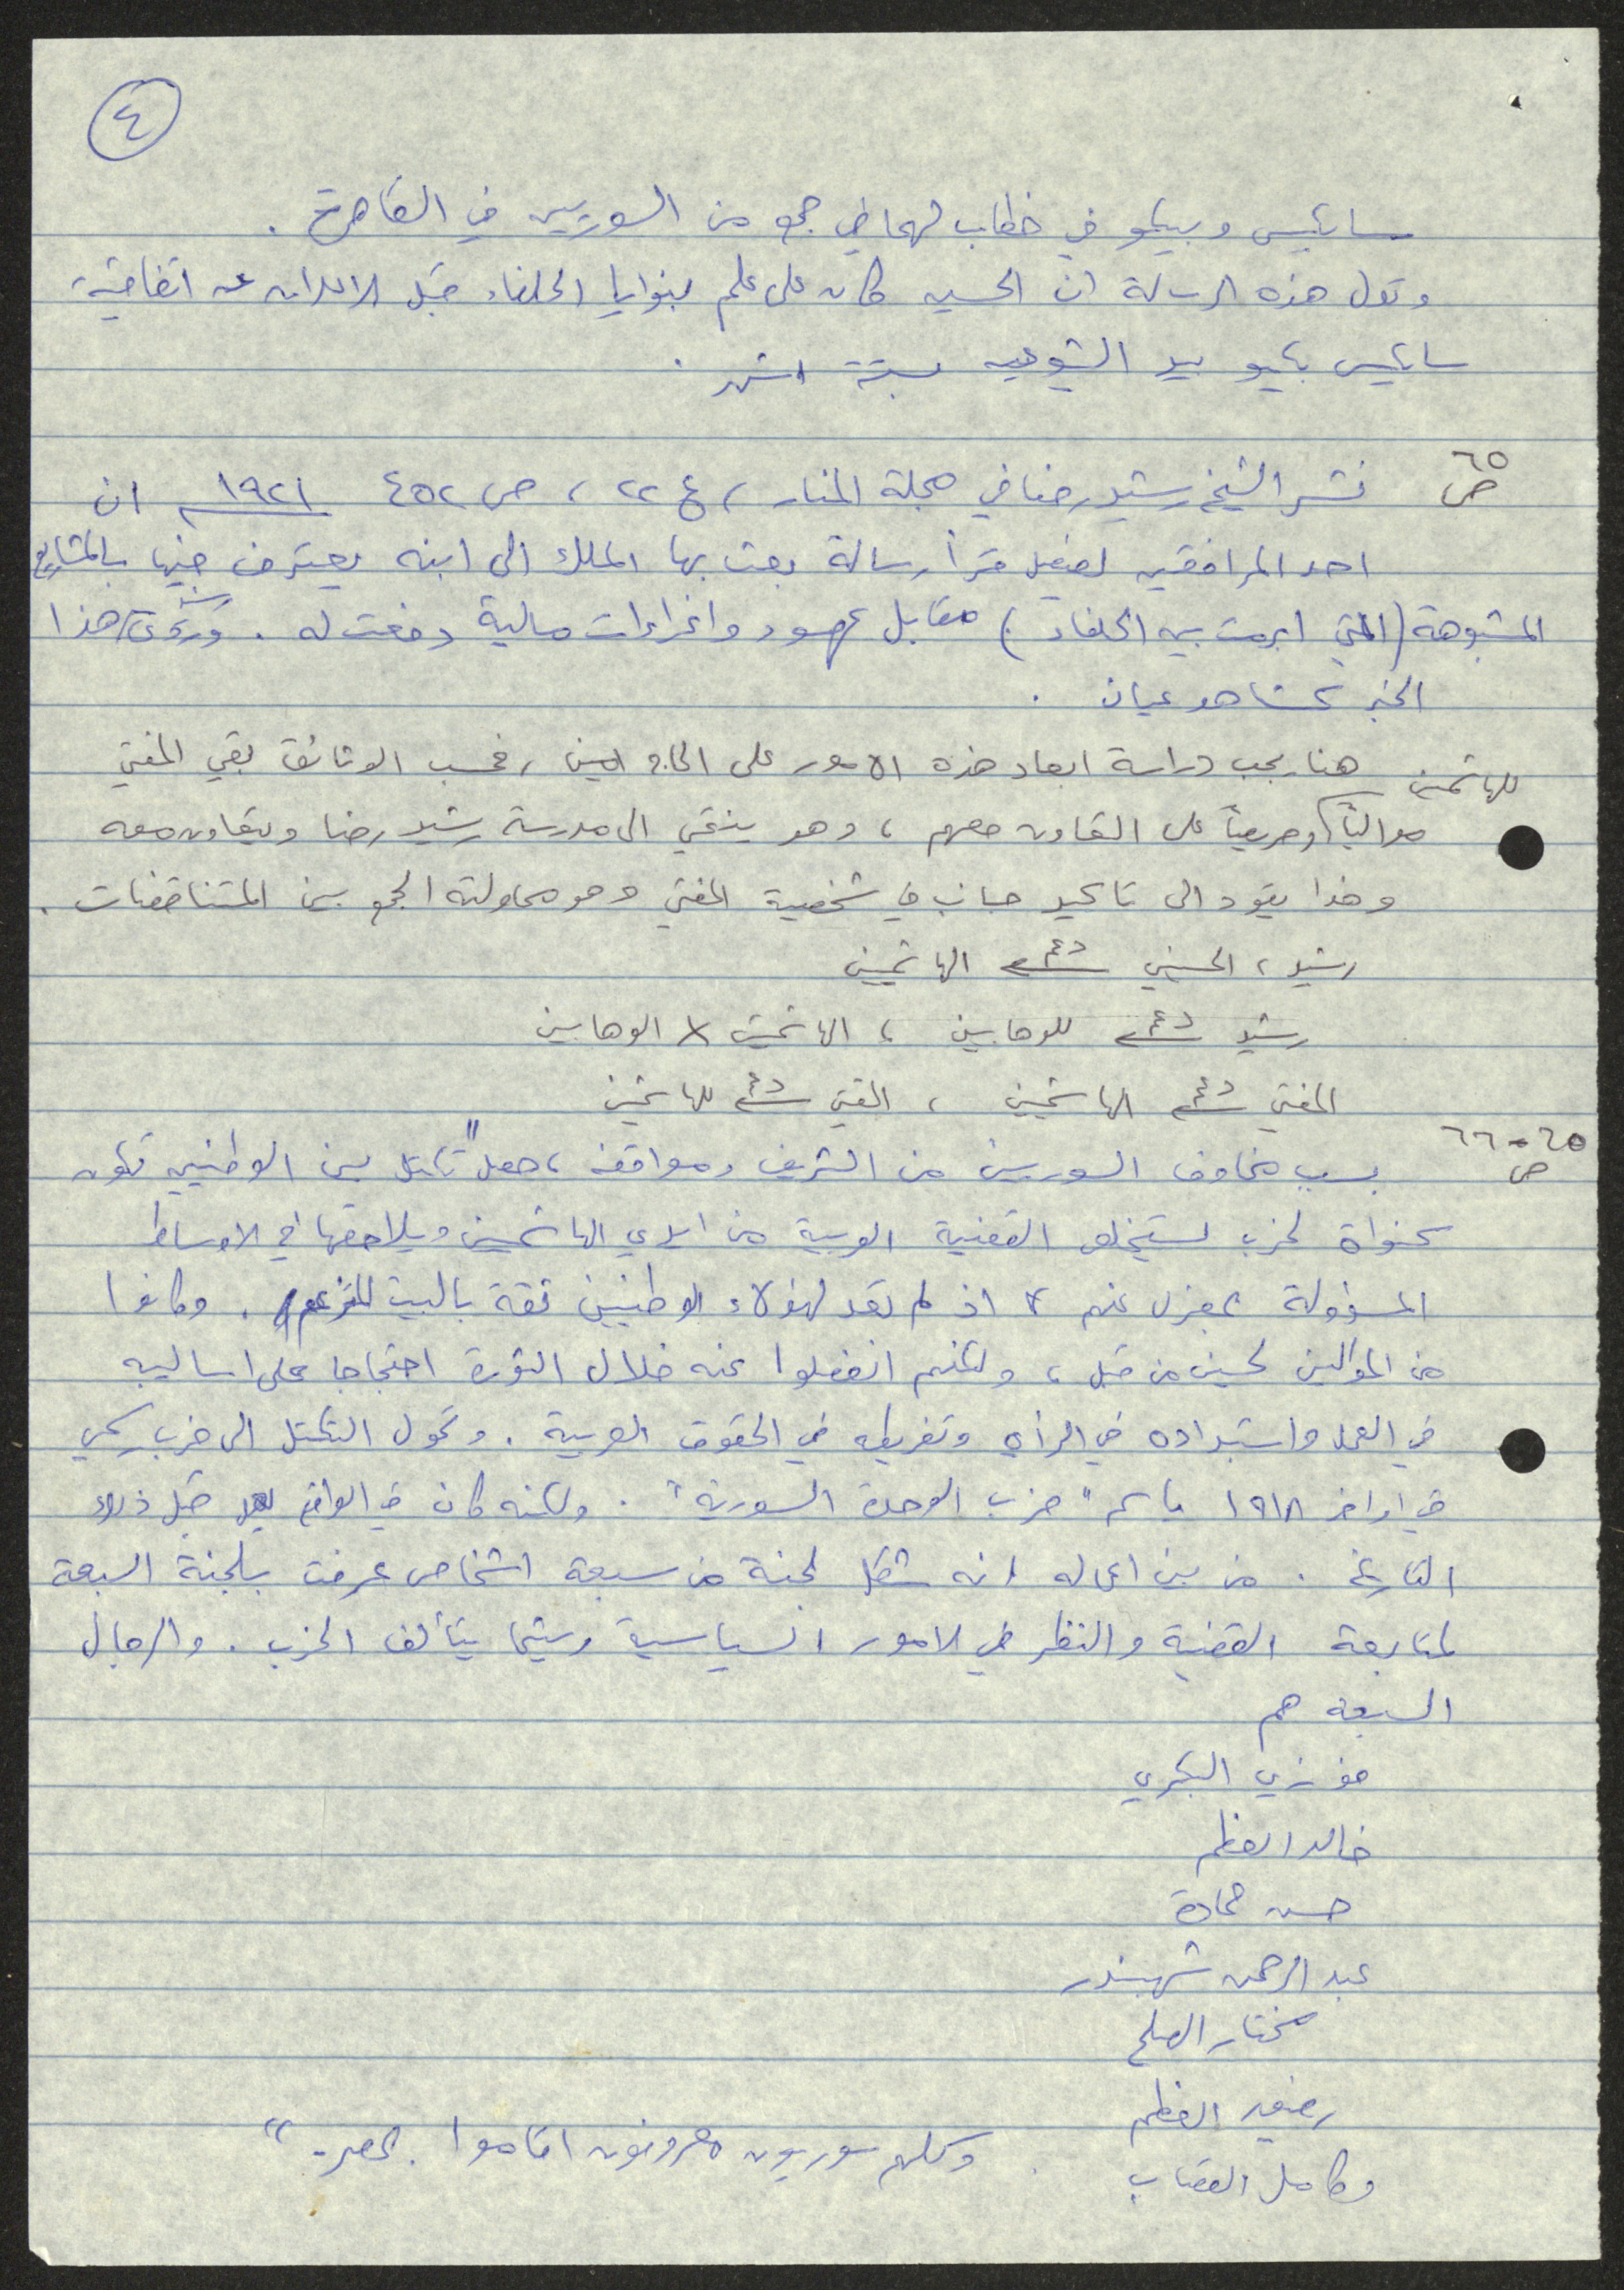 ٤
سايكس وبيكو في خطاب لهما في جمع من السوريين في القاهرة .
وتدل هذه الرسالة ان الحسين كان على علم بنوايا الحلفاء قبل الاعلان عن اتفاقية
سايكس بيكو بيد الشيوعيين بستة اشهر .
ص ٦٥ نشر الشيخ رشيد رضا في مجلة المنار ، ع ٢٢ ، ص ٤٥٢ ١٩٢١ ان
احد المرافقين لفيصل قرأ رسالة بعث بها الملك الى ابنه يعترف فيها بالمشاريع
المشبوهة (التي ابرمت بين الحلفاء) مقابل عهود واغراءات مالية دفعت له . هذا
الخبر كشاهد عيان .
هنا يجب دراسة ابعاد هذه الامور على الحاج امين ، فحسب الوثائق بقي المفتي
موالياً للهاشميين وحريصاً على التعاون معهم ، وهو ينتمي الى مدرسة رشيد رضا ويتعاون معه
وهذا يقود الى تاكيد جانب في شخصية المفتي وهو محاولته الجمع بين المتناقضات .
رشيد ، الحسيني دعم الهاشميين
رشيد دعم للوهابيين ، الهاشميين X الوهابيين
المفتي دعم الهاشميين ، المفتي دعم للهاشميين
ص ٦٥-٦٦ بسبب مخاوف السوريين من الشريف ومواقفه ، حصل "تكتل بين الوطنيين تكون
كنواة لحزب يستخلص القضية العربية من ايدي الهاشميين ويلاحقها في الاوساط
المسؤولة بمعزل عنهم ، اذ لم تعد لهؤلاء الوطنيين ثقة بالبيت . وكانوا
من الموالين لحسين من قبل ، ولكنهم انفصلوا عنه خلال الثورة احتجاجا على اساليبه
في العمل واستبداده في الرأي وتفريطه في الحقوق العربية . وتحول التكتل الى حزب رسمي
في اواخر ١٩١٨ باسم "حزب الوحدة السورية" . ولكنه كان في الواقع قبل ذلك
التاريخ . من بين اعماله انه شكل لجنة من سبعة اشخاص عرفت بلجنة السبعة
لمتابعة القضية والنظر في الامور السياسية ريثما يتألف الحزب . والرجال
السبعة هم
فوزي البكري
خالد العظم
حسن حمادة
عبد الرحمن شهبندر
مختار الصلح
رفيق العظم
وكامل القصاب
وكلهم سوريون معروفون اقاموا بمصر . "